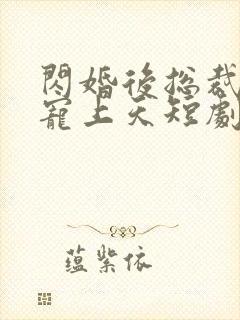 閃婚後總裁
寵上天短劇
蘊紫依